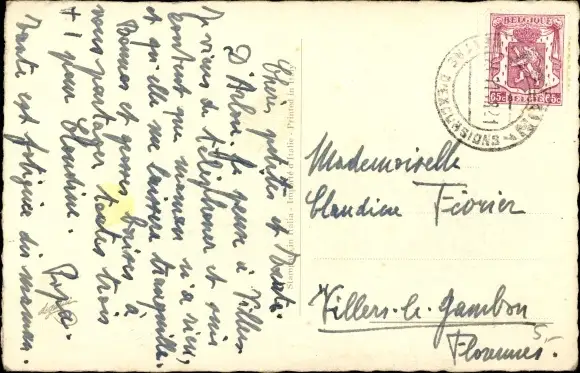 Chers petites et Tante.
D'Arlon. Je pense à Villers
Je viens de téléphoner et suis
content que maman n'a rien,
et qu'elle me laissera tranquille.
Bonnes et grosses baises à
vous partager toutes trois
+ 1 pour Claudine. Papa.
Tante est fatiguée dis maman.
Stampato in Italia - Imprimé en Italie - Printed in Italy
BELGIQUE
65c BELGIE 65c
Mademoiselle
Claudine Février
Villers-le-Gambon
Florennes.
5,-